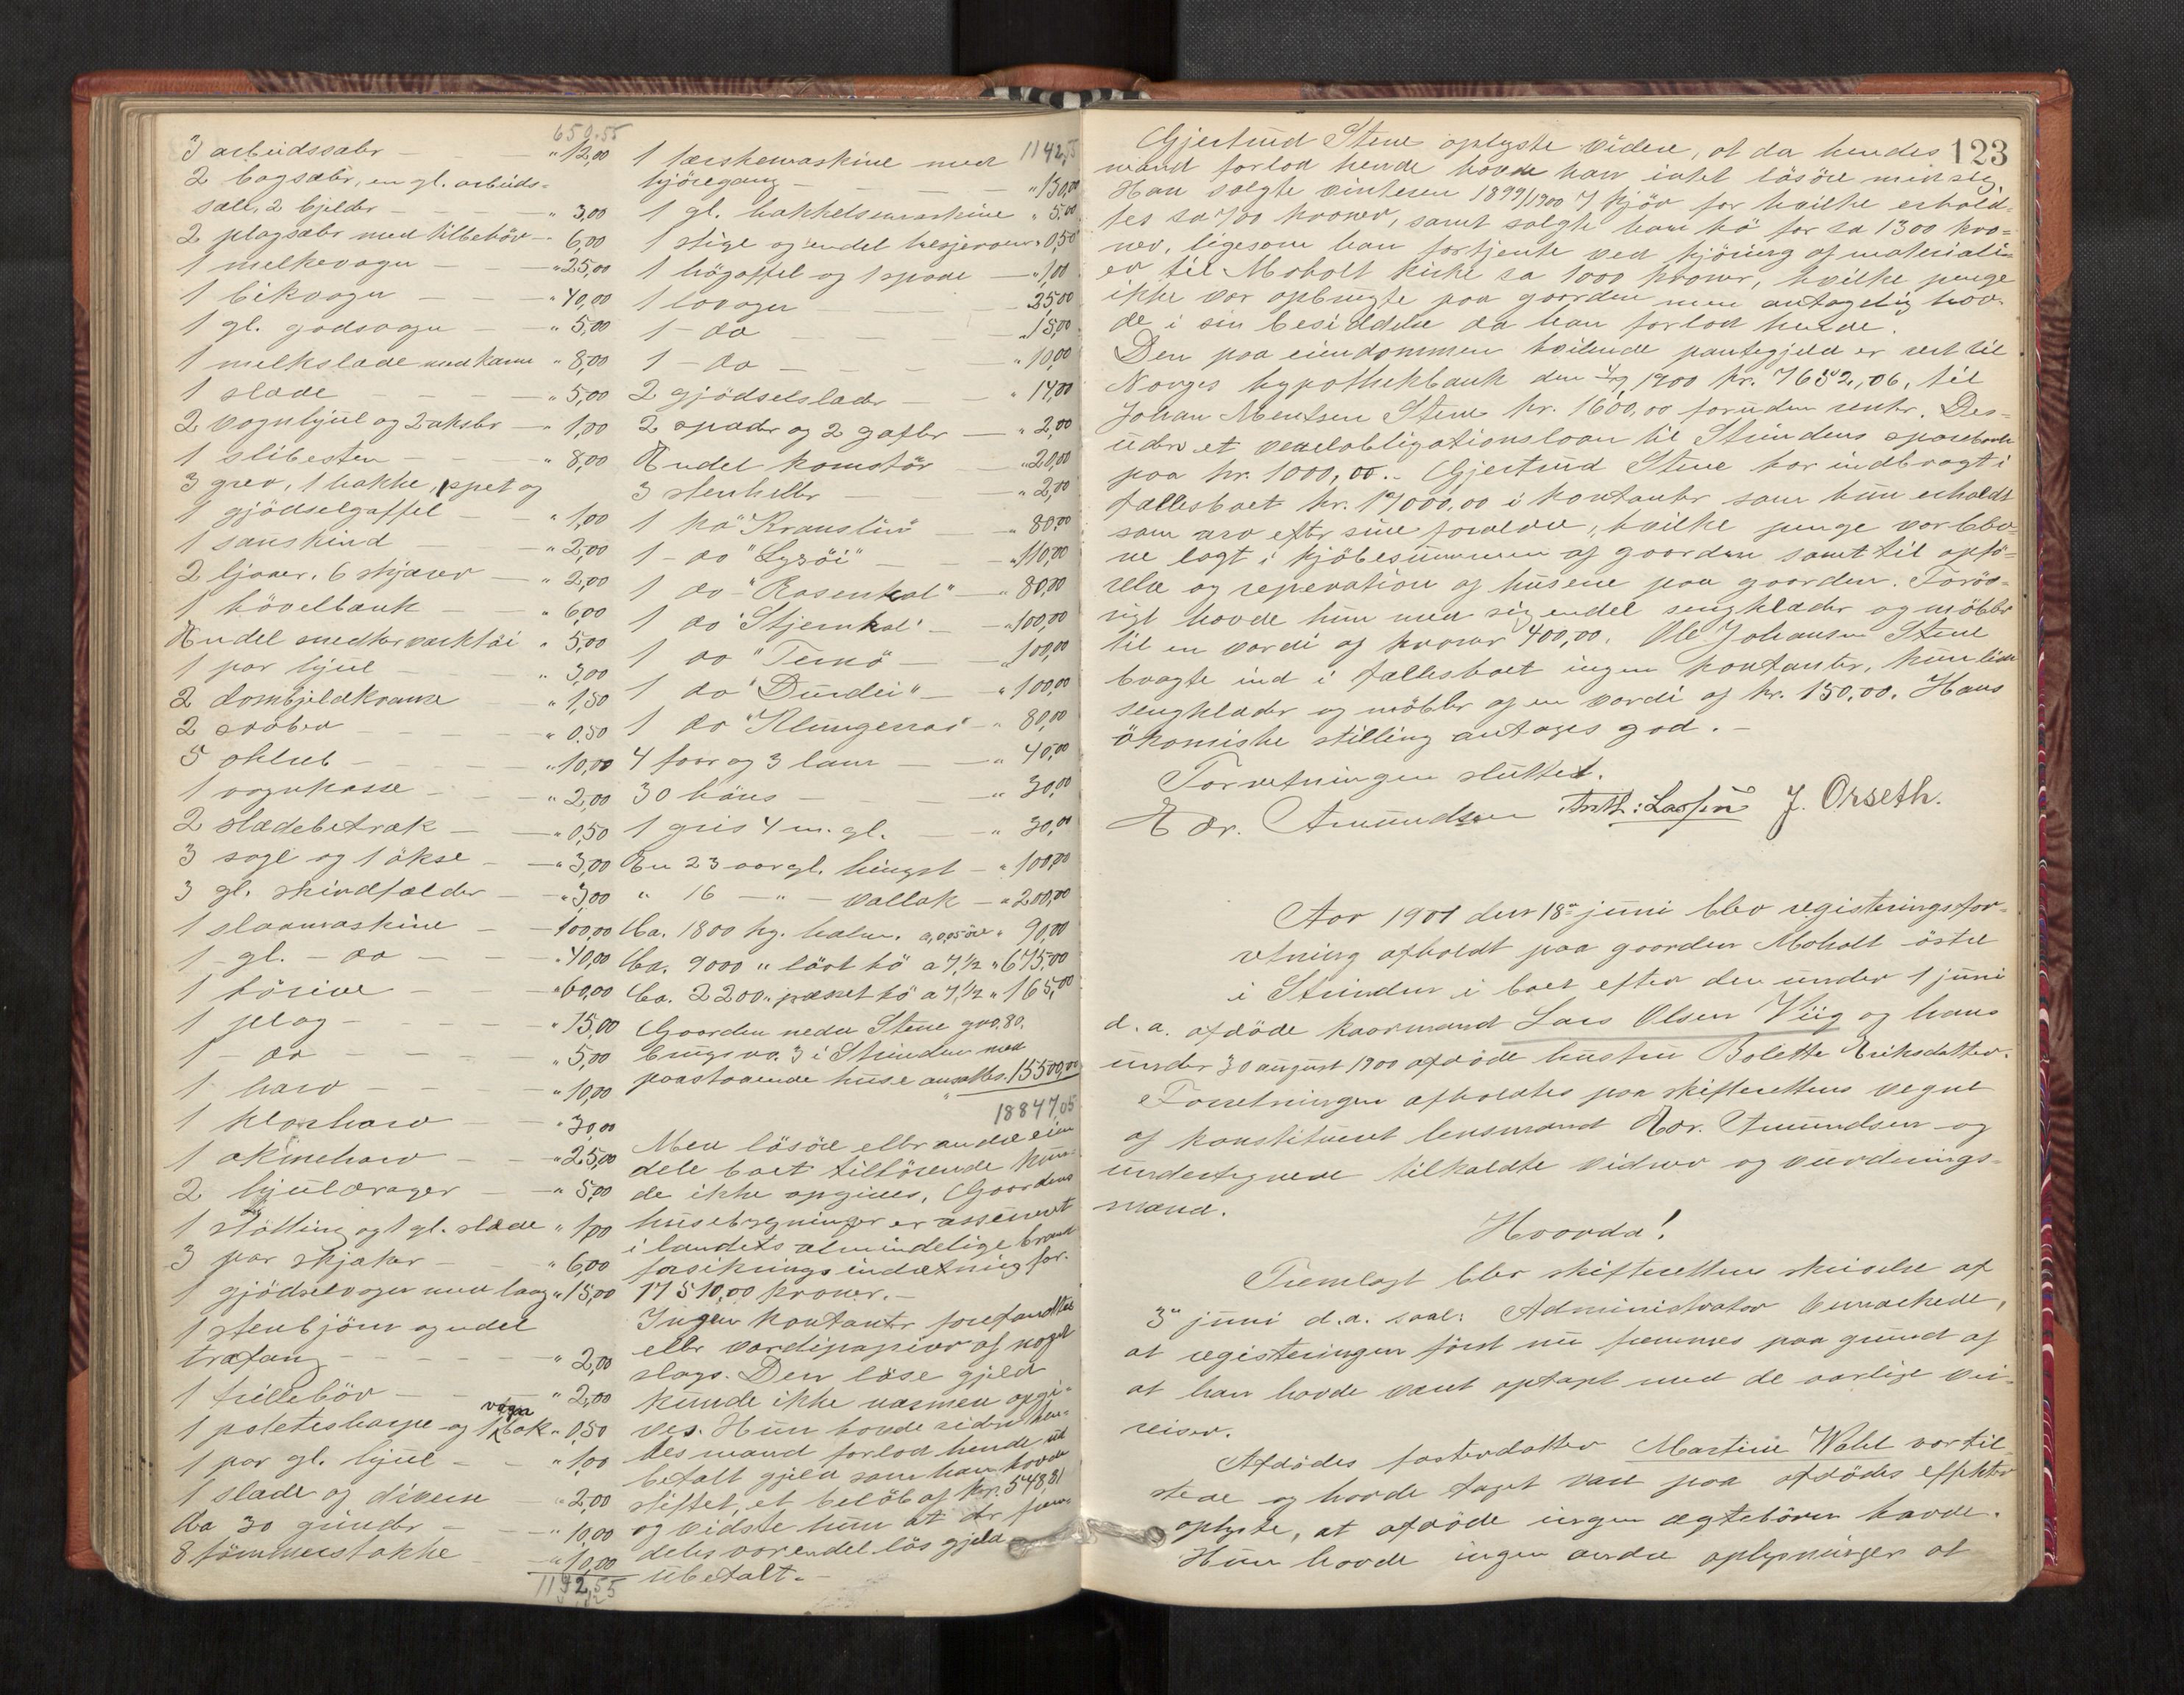 650.55
3 arbeidssæler — "12,00
2 bogsæler, en gl. arbeids-
sæle, 2 bjelder — " 3,00
2 plogsæler med tilbehör — " 6,00
1 melkevogn — " 25,00
1 bikvogn — " 40,00
1 gl. godsvogn — " 5,00
1 melkslæde med karm " 8,00
1 slæde — " 5,00
2 vognhjul og 2 aksler — " 1,00
1 slibesten — " 8,00
3 grev, 1 hakke, 1 spet og
1 gjödselgaffel — " 1,00
1 sauskind — " 2,00
2 ljaaer, 6 skjærer — " 2,00
1 hövelbænk — " 6,00
Endel snedkerværktöi " 5,00
1 par hjul — " 3,00
2 dombjeldkranse " 1,50
2 svöber " 0,50
5 oklæb — " 10,00
1 vognkasse — " 2,00
2 slædebetræk — " 0,50
3 sage og 1 ökse — " 3,00
3 gl. skindfælder — " 3,00
1 slaamaskine — " 100,00
1 - gl. - do — " 40,00
1 hörive — " 60,00
1 plog — " 15,00
1 - do — " 5,00
1 harv — " 10,00
1 kloharv — " 30,00
1 skineharv — " 25,00
2 hjuldrager — " 5,00
1 stötting og 1 gl. slæde " 1,00
3 par skjæker — " 6,00
1 gjödselvogn med laag " 15,00
1 stenbjörn og endel
træfang — " 2,00
1 trillebör — " 2,00
1 potetesharpe og 1 vogn bak " 0,50
1 par gl. hjul — " 1,00
1 slæde og diverse " 2,00
Ca 30 grinder — " 10,00
8 tömmerstokke — " 10,00
1142,55
1 tærskemaskine med 1142,55
hjöregang — " 150,00
1 gl. hakkelsmaskine " 5,00
1 stige og endel hesjeroer " 0,50
1 högaffel og 1 spade — " 1,00
1 lovogn — 25,00
1 - do — " 15,00
1 - do — " 10,00
2 gjödselslæder — " 14,00
2 spader og 2 gafler — " 2,00
Endel komstör — " 20,00
3 stenheller — " 2,00
1 ko "Kranslin" — " 80,00
1 - do "Lysöi" — " 110,00
1 do "Rosenkol" — " 80,00
1 do "Stjernkol" — " 100,00
1 do "Ternö" — " 100,00
1 do "Durdei" — " 100,00
1 do "Klungerros" — " 80,00
4 foor og 3 lam — " 40,00
30 höns — " 30,00
1 gris 4 m. gl. — " 30,00
En 23 aar gl. hingst — " 100,00
" 16 — " — vallak — " 200,00
Ca. 1800 kg. halm. a 0,05 öre " 90,00
Ca. 9000 " löst hö a 7 1/2 " 675,00
Ca. 2200 " presset hö a 7 1/2 " 165,00
Gaarden nedre Stene gno. 80.
brugs no. 3 i Strinden med
paastaaende huse ansattes " 15500,00
18847,05
Mere lösöre eller andre eien
dele boet tilhörende kun-
de ikke opgives. Gaardens
husebygninger er assureret
i landets almindelige brand
forsikringsindretning for
17510,00 kroner. —
Ingen kontanter forefandtes
eller værdipapirer af noget
slags. Den löse gjeld
kunde ikke nærmere opgi-
ves. Hun havde siden hen-
des mand forlod hende ud
betalt gjeld som han havde
stiftet, et belöb af kr. 548,81
og vidste hun at der frem-
deles var endel lös gjeld
ubetalt. —
123
Gjertrud Stene oplyste videre, at da hendes
mand forlod hende havde han intet lösöre med sig.
Han solgte vinteren 1899/1900 7 kjör for hvilke erhold-
tes ca 700 kroner, samt solgte han hö for ca 1300 kro-
ner, ligesom han fortjente ved kjöring af materiali-
er til Moholt kirke ca 1000 kroner, hvilke penge
ikke var opbrugte paa gaarden men antagelig hav-
de i sin besiddelse da han forlod hende.
Den paa eiendommen hvilende pantegjeld er rest til
Norges hypothekbank den 4/9 1900 kr. 7652,06, til
Johan Mentsen Stene kr. 1600,00 foruden renter. Des-
uden et vexelobligationslaan til Strindens sparebank
paa kr. 1000,00. — Gjertrud Stene har indbragt i
fællesboet kr. 17000,00 i kontanter som hun erholdt
som arv efter sine forældre, hvilke penge var ble-
ne lagt i kjöbesummen af gaarden samt til opfö-
relse og reperation af husene paa gaarden. Foröv-
rigt havde hun med sig endel sengklæder og möbler
til en værdi af kroner 400,00. Ole Johansen Stene
bragte ind i fællesboet ingen kontanter, kun lidt
sengklæder og möbler af en værdi af kr. 150,00. Hans
ökomiske stilling antages god. —
Forretningen sluttet.
Edv. Amundsen Anth: Larsen J. Orseth.
Aar 1901 den 18de juni blev registeringsfor-
retning afholdt paa gaarden Moholt östre
i Strinden i boet efter den under 1 juni
d. a. afdöde kaarmand Lars Olsen Viig og hans
under 30 august 1900 afdöde hustru Bolette Eriksdatter.
Forretningen afholdtes paa skifterettens vegne
af konstitueret lensmand Edv. Amundsen og
undertegnede tilkaldte vidner og vurderings-
mænd.
Hvorda!
Fremlagt blev skifterettens skrivelse af
3die juni d. a. saal: Administrator bemærkede,
at registeringen först nu fremmes paa grund af
at han havde været optaget med de aarlige vei-
reiser.
Afdödes fosterdatter Martine Wahl var til-
stede og havde taget vare paa afdödes effekter
oplyste, at afdöde ingen ægtebörn havde.
Hun havde ingen andre oplysninger at